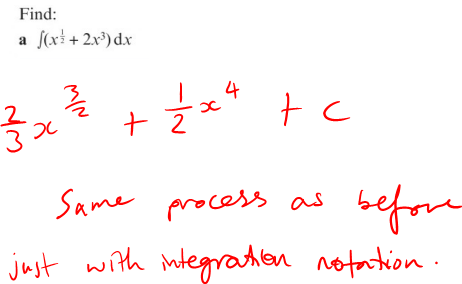 Find:
a ∫(x^½ + 2x³) dx
2/3 x^(3/2) + 1/2 x⁴ + c
Same process as before
just with integration notation.